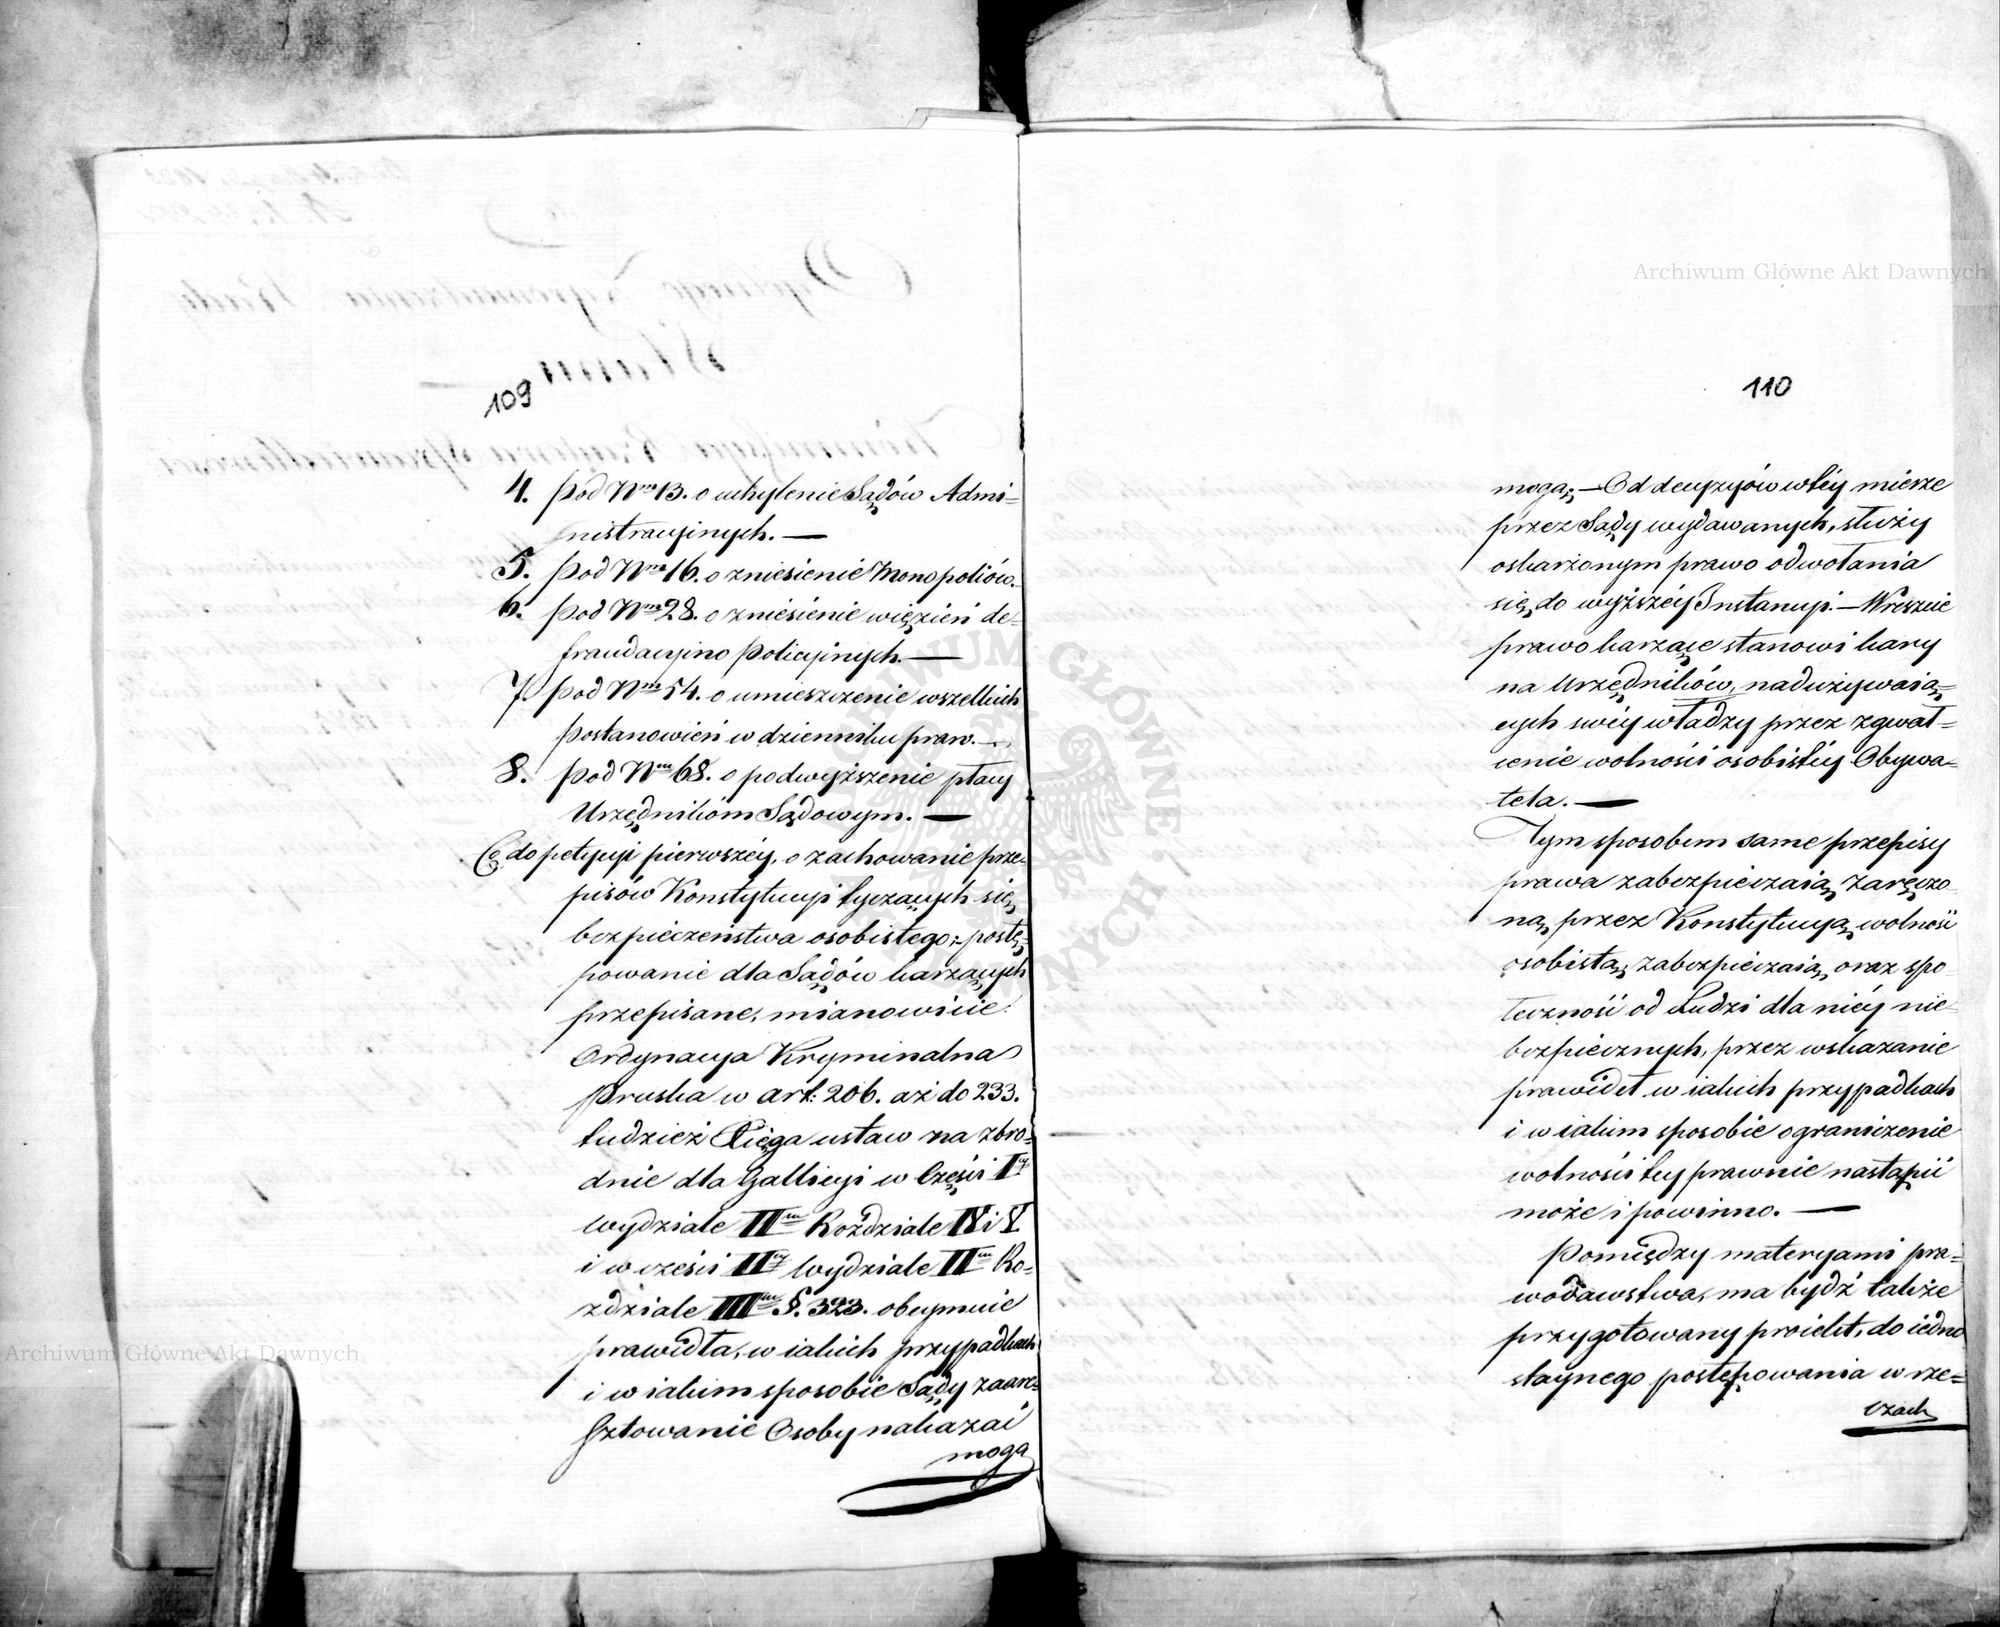 109
4. pod Nrm 13. o uchylenie Sądów Admi=
nistracyinych. —
5. pod Nrm 16. o zniesienie Monopoliów.
6. pod Nrm 28. o zniesienie więzień de-
fraudacyino Policyinych. —
7. pod Nrm 54. o umieszczenie wszelkich
postanowień w dzienniku praw. —
8. pod Nrm 68. o podwyższenie płacy
Urzędnikom Sądowym. —
Co do petycyi pierwszéy, o zachowanie prze-
pisów Konstytucyi tyczących się
bezpieczeństwa osobistego; postę-
powanie dla Sądów karzących
przepisane, mianowicie:
Ordynacya Kryminalna
Pruska w art: 206. aż do 233.
tudzież Xięga ustaw na zbro-
dnie dla Gallicyi w Części Iéy
Wydziale IIm Rozdziale IV i V
i w części IIéy Wydziale IIm Ro-
zdziale IIIm §. 323. obeymuie
prawidła, w iakich przypadkach
i w iakim sposobie Sądy zaare-
sztowanie Osoby nakazać
mogą
110
mogą; — Od decyzyów w téy mierze
przez Sądy wydawanych, służy
oskarżonym prawo odwołania
się do wyższéy Instancyi. — Wreszcie
prawo karzące stanowi kary
na Urzędników, nadużywaią=
cych swéy władzy przez zgwał=
cenie wolności osobistéy Obywa=
tela. —
Tym sposobem same przepisy
prawa zabezpieczaią zaręczo-
ną przez Konstytucyą wolność
osobistą; zabezpieczaią oraz spo-
łeczność od Ludzi dla niéy nie-
bezpiecznych, przez wskazanie
prawideł w iakich przypadkach
i w iakim sposobie ograniczenie
wolności téy prawnie nastąpić
może i powinno. —
Pomiędzy materyami pra=
wodawstwa, ma bydź także
przygotowany proiekt, do iedno
staynego postępowania w rze=
czach
Archiwum Główne Akt Dawnych
Archiwum Główne Akt Dawnych